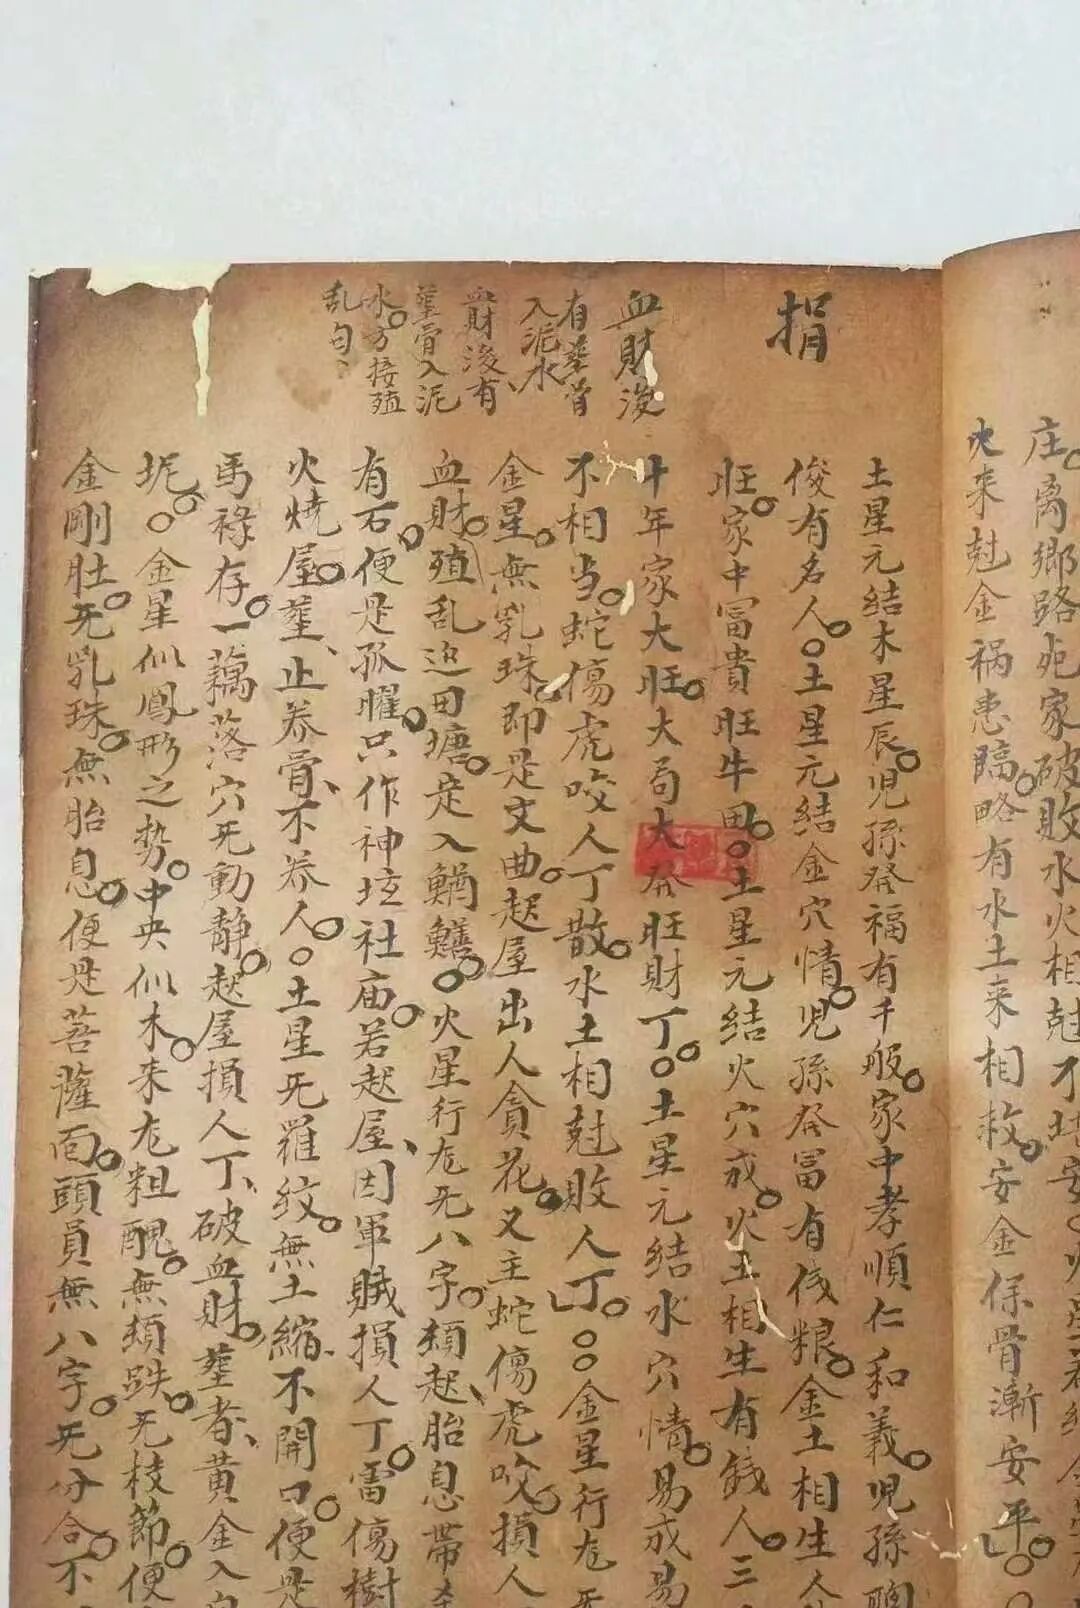 庄。离鄉路
火来尅金祸患臨。略有水土来相救。安金保骨漸安平。
捐
土星元結木星辰。児孫癸福有千般。家中孝順仁和義。児孫
俊有名人。○土星元結金穴情。児孫癸冨有伐粮。金土相生人
旺。家中冨貴旺牛田。○土星元結火穴戎。火土相生有錢人。三
十年家大旺。大局大癸旺財丁。○土星元結水穴情。易戎易
不相当。蛇傷虎咬人丁散。水土相尅敗人丁。○○金星行尨无
金星。無乳珠。即是文曲。起屋出人貪花。又主蛇傷虎咬。損人
血財。殖乱迫田塘。是入鰤鱔。○火星行尨无八字。頬起、胎息帶
有石。便是孤曜。只作神坛社庙。若起屋、因軍賊損人丁。雷傷樹
火燒屋。塟、止养骨、不养人。○土星无羅紋。無土縮、不開口。便是
馬祿存。一藕落穴无動静。起屋損人丁、破血財。塟者、黄金入
坭。○金星似鳳形之势。中央似木。来尨粗醜。無頬跌。无枝節。便
金剛肚。无乳珠。無胎息。便是菩薩面。頭員無八字。无分合。不
血財浚
有塟骨
入泥水
血財浚有、
塟骨入泥
水。方接殖
乱句、